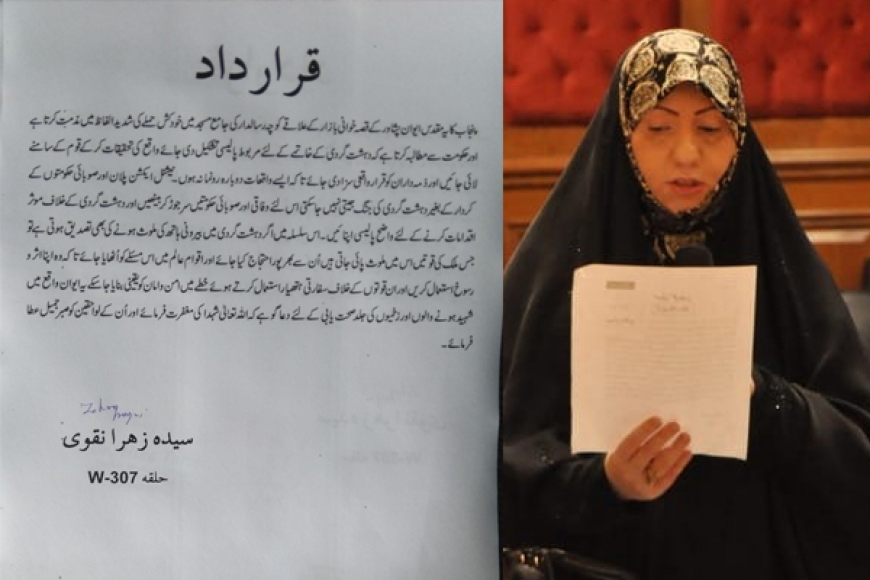 قرارداد
پنجاب کا یہ مقدس ایوان پشاور کے قصہ خوانی بازار کے علاقے کوچہ رسالدار کی جامع مسجد میں خودکش حملے کی شدید الفاظ میں مذمت کرتا ہے
اور حکومت سے مطالبہ کرتا ہے کہ دہشت گردی کے خاتمے کے لئے مربوط پالیسی تشکیل دی جائے واقع کی تحقیقات کر کے قوم کے سامنے
لائی جائیں اور ذمہ داران کو قرار واقعی سزا دی جائے تاکہ ایسے واقعات دوبارہ رونما نہ ہوں۔ نیشنل ایکشن پلان اور صوبائی حکومتوں کے
کردار کے بغیر دہشت گردی کی جنگ جیتی نہیں جا سکتی اس لئے وفاقی اور صوبائی حکومتیں سر جوڑ کر بیٹھیں اور دہشت گردی کے خلاف موثر
اقدامات کرنے کے لئے واضح پالیسی اپنائیں۔ اس سلسلہ میں اگر دہشت گردی میں بیرونی ہاتھ کی ملوث ہونے کی بھی تصدیق ہوتی ہے تو
جس ملک کی قوتیں اس میں ملوث پائی جاتی ہیں اُن سے بھرپور احتجاج کیا جائے اور اقوام عالم میں اس مسئلے کو اُٹھایا جائے تاکہ وہ اپنا اثر و
رسوخ استعمال کریں اور ان قوتوں کے خلاف سفارتی ہتھیار استعمال کرتے ہوئے خطے میں امن و امان کو یقینی بنایا جا سکے یہ ایوان واقع میں
شہید ہونے والوں اور زخمیوں کی جلد صحت یابی کے لئے دعا گو ہے کہ اللہ تعالیٰ شہدا کی مغفرت فرمائے اور اُن کے لواحقین کو صبر جمیل عطا
فرمائے۔
سیدہ زھرا نقوی
حلقہ W-307